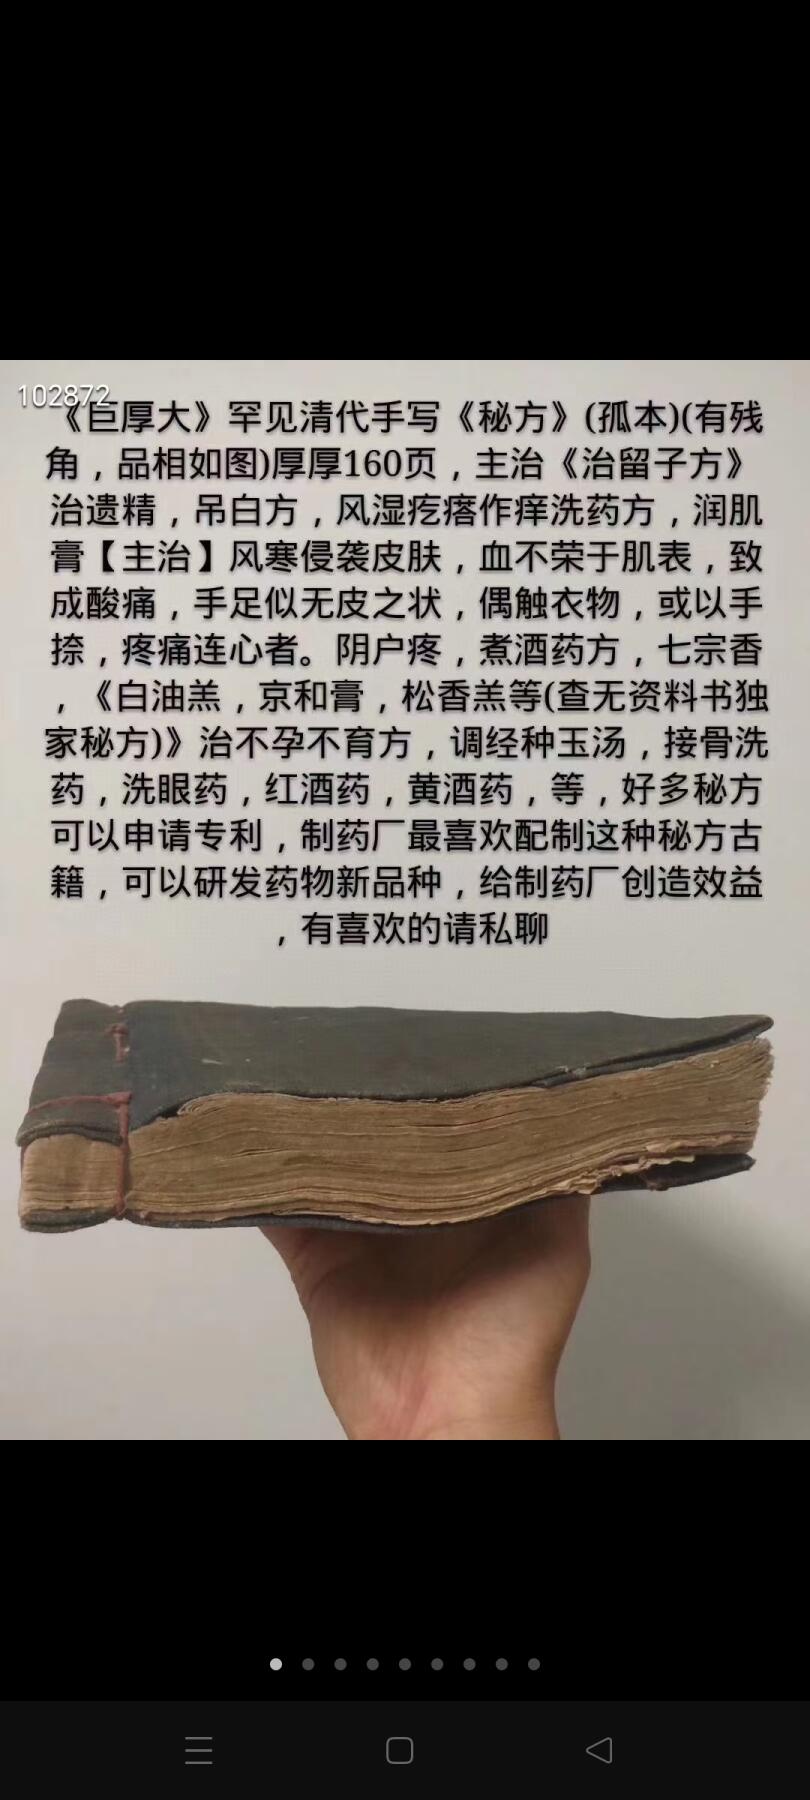 102872
《巨厚大》罕见清代手写《秘方》(孤本)(有残
角，品相如图)厚厚160页，主治《治留子方》
治遗精，吊白方，风湿疙瘩作痒洗药方，润肌
膏【主治】风寒侵袭皮肤，血不荣于肌表，致
成酸痛，手足似无皮之状，偶触衣物，或以手
捺，疼痛连心者。阴户疼，煮酒药方，七宗香
，《白油羔，京和膏，松香羔等(查无资料书独
家秘方)》治不孕不育方，调经种玉汤，接骨洗
药，洗眼药，红酒药，黄酒药，等，好多秘方
可以申请专利，制药厂最喜欢配制这种秘方古
籍，可以研发药物新品种，给制药厂创造效益
，有喜欢的请私聊